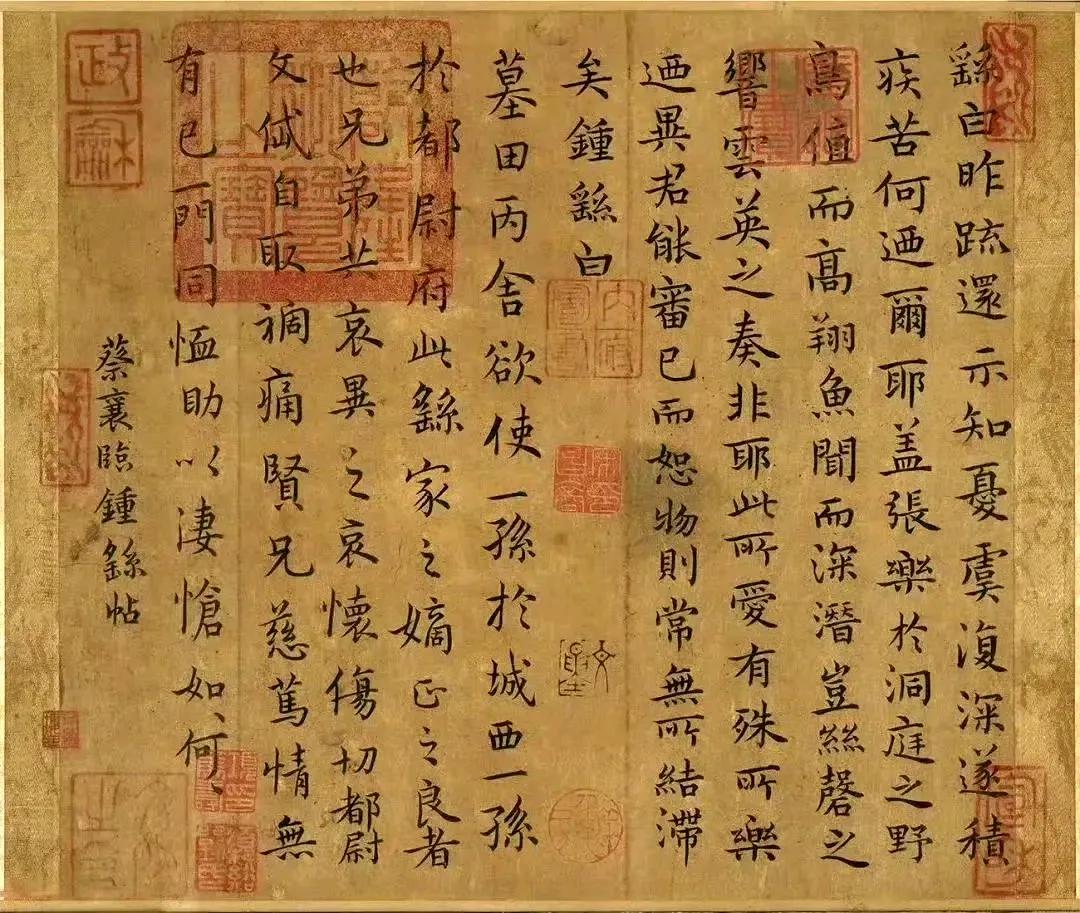 繇白昨疏還示知憂虞復深遂積
疾苦何迺爾耶蓋張樂於洞庭之野
鳥值而高翔魚聞而深潛豈絲磬之
響雲英之奏非耶此所愛有殊所樂
迺異君能審己而恕物則常無所結滯
矣鍾繇白
墓田丙舍欲使一孫於城西一孫
於都尉府此繇家之嫡正之良者
也兄弟共哀異之哀懷傷切都尉
文岱自取禍痛賢兄慈篤情無
有已一門同恤助以淒愴如何如何
蔡襄臨鍾繇帖
政龢
內府圖書